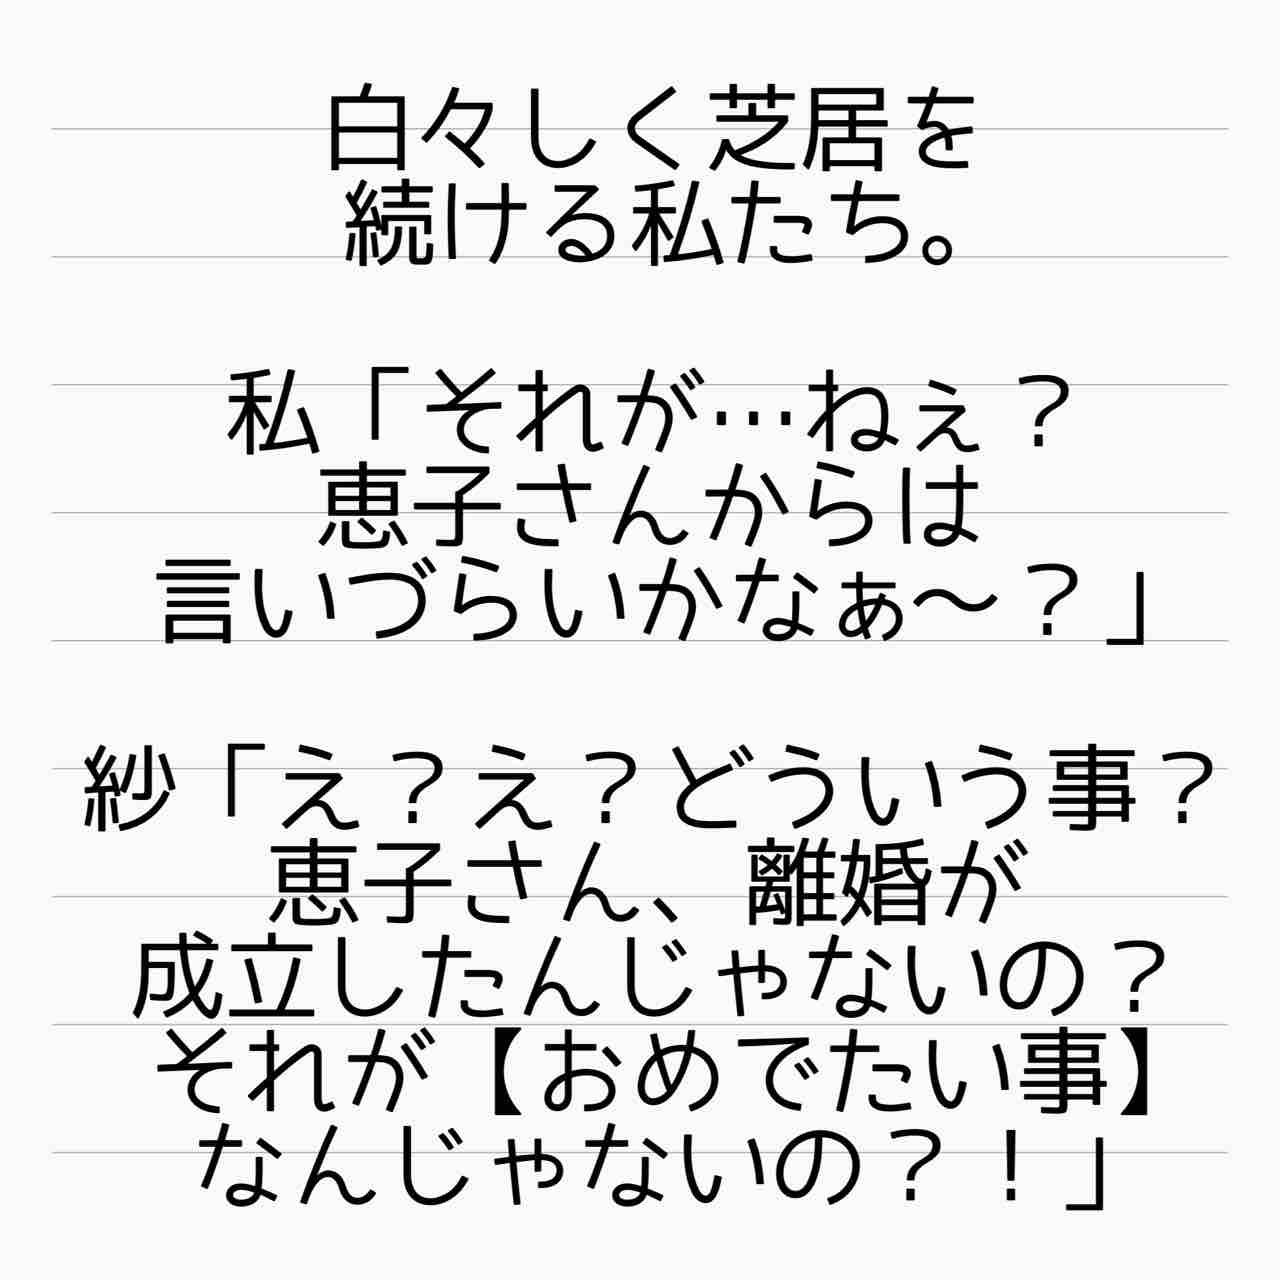 白々しく芝居を
続ける私たち。
私「それが…ねぇ？
恵子さんからは
言いづらいかなぁ〜？」
紗「え？え？どういう事？
恵子さん、離婚が
成立したんじゃないの？
それが【おめでたい事】
なんじゃないの？！」